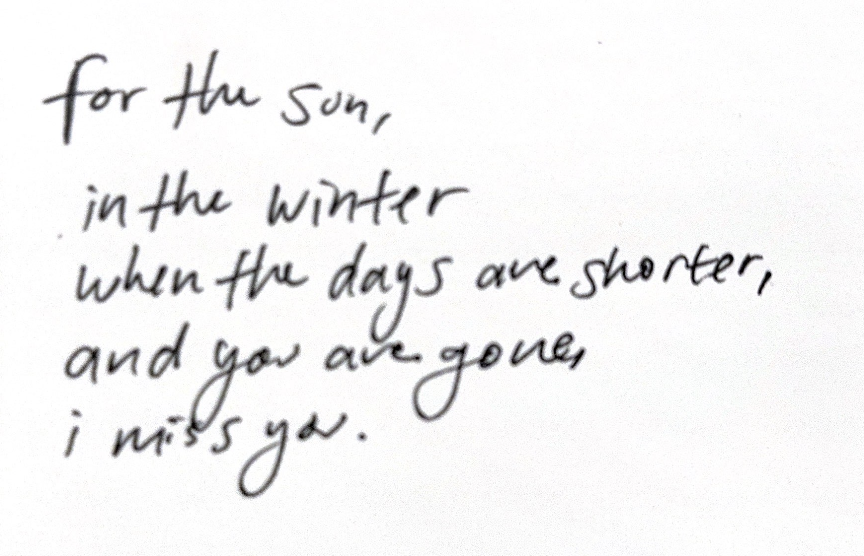 for the sun,
in the winter
when the days are shorter,
and you are gone,
i miss you.